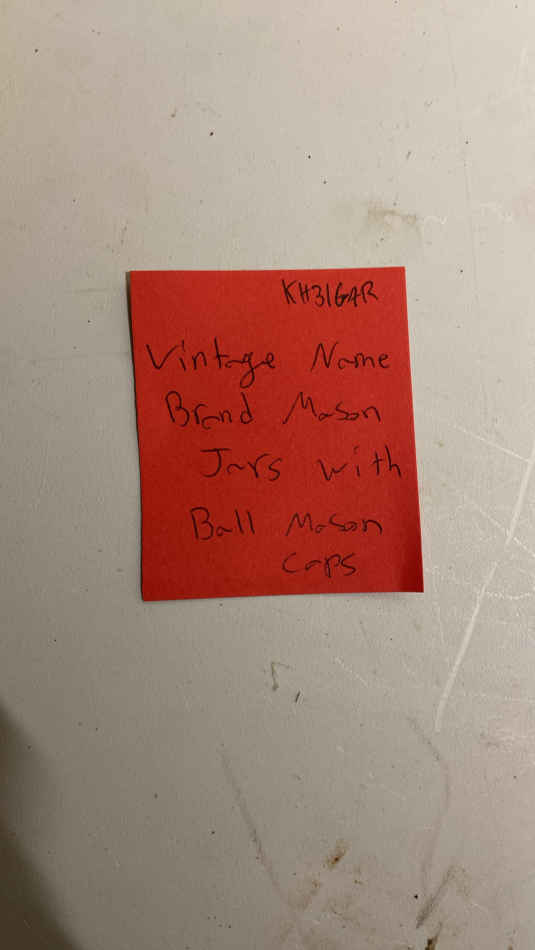 KH31GAR
Vintage Name
Brand Mason
Jars with
Ball Mason
caps